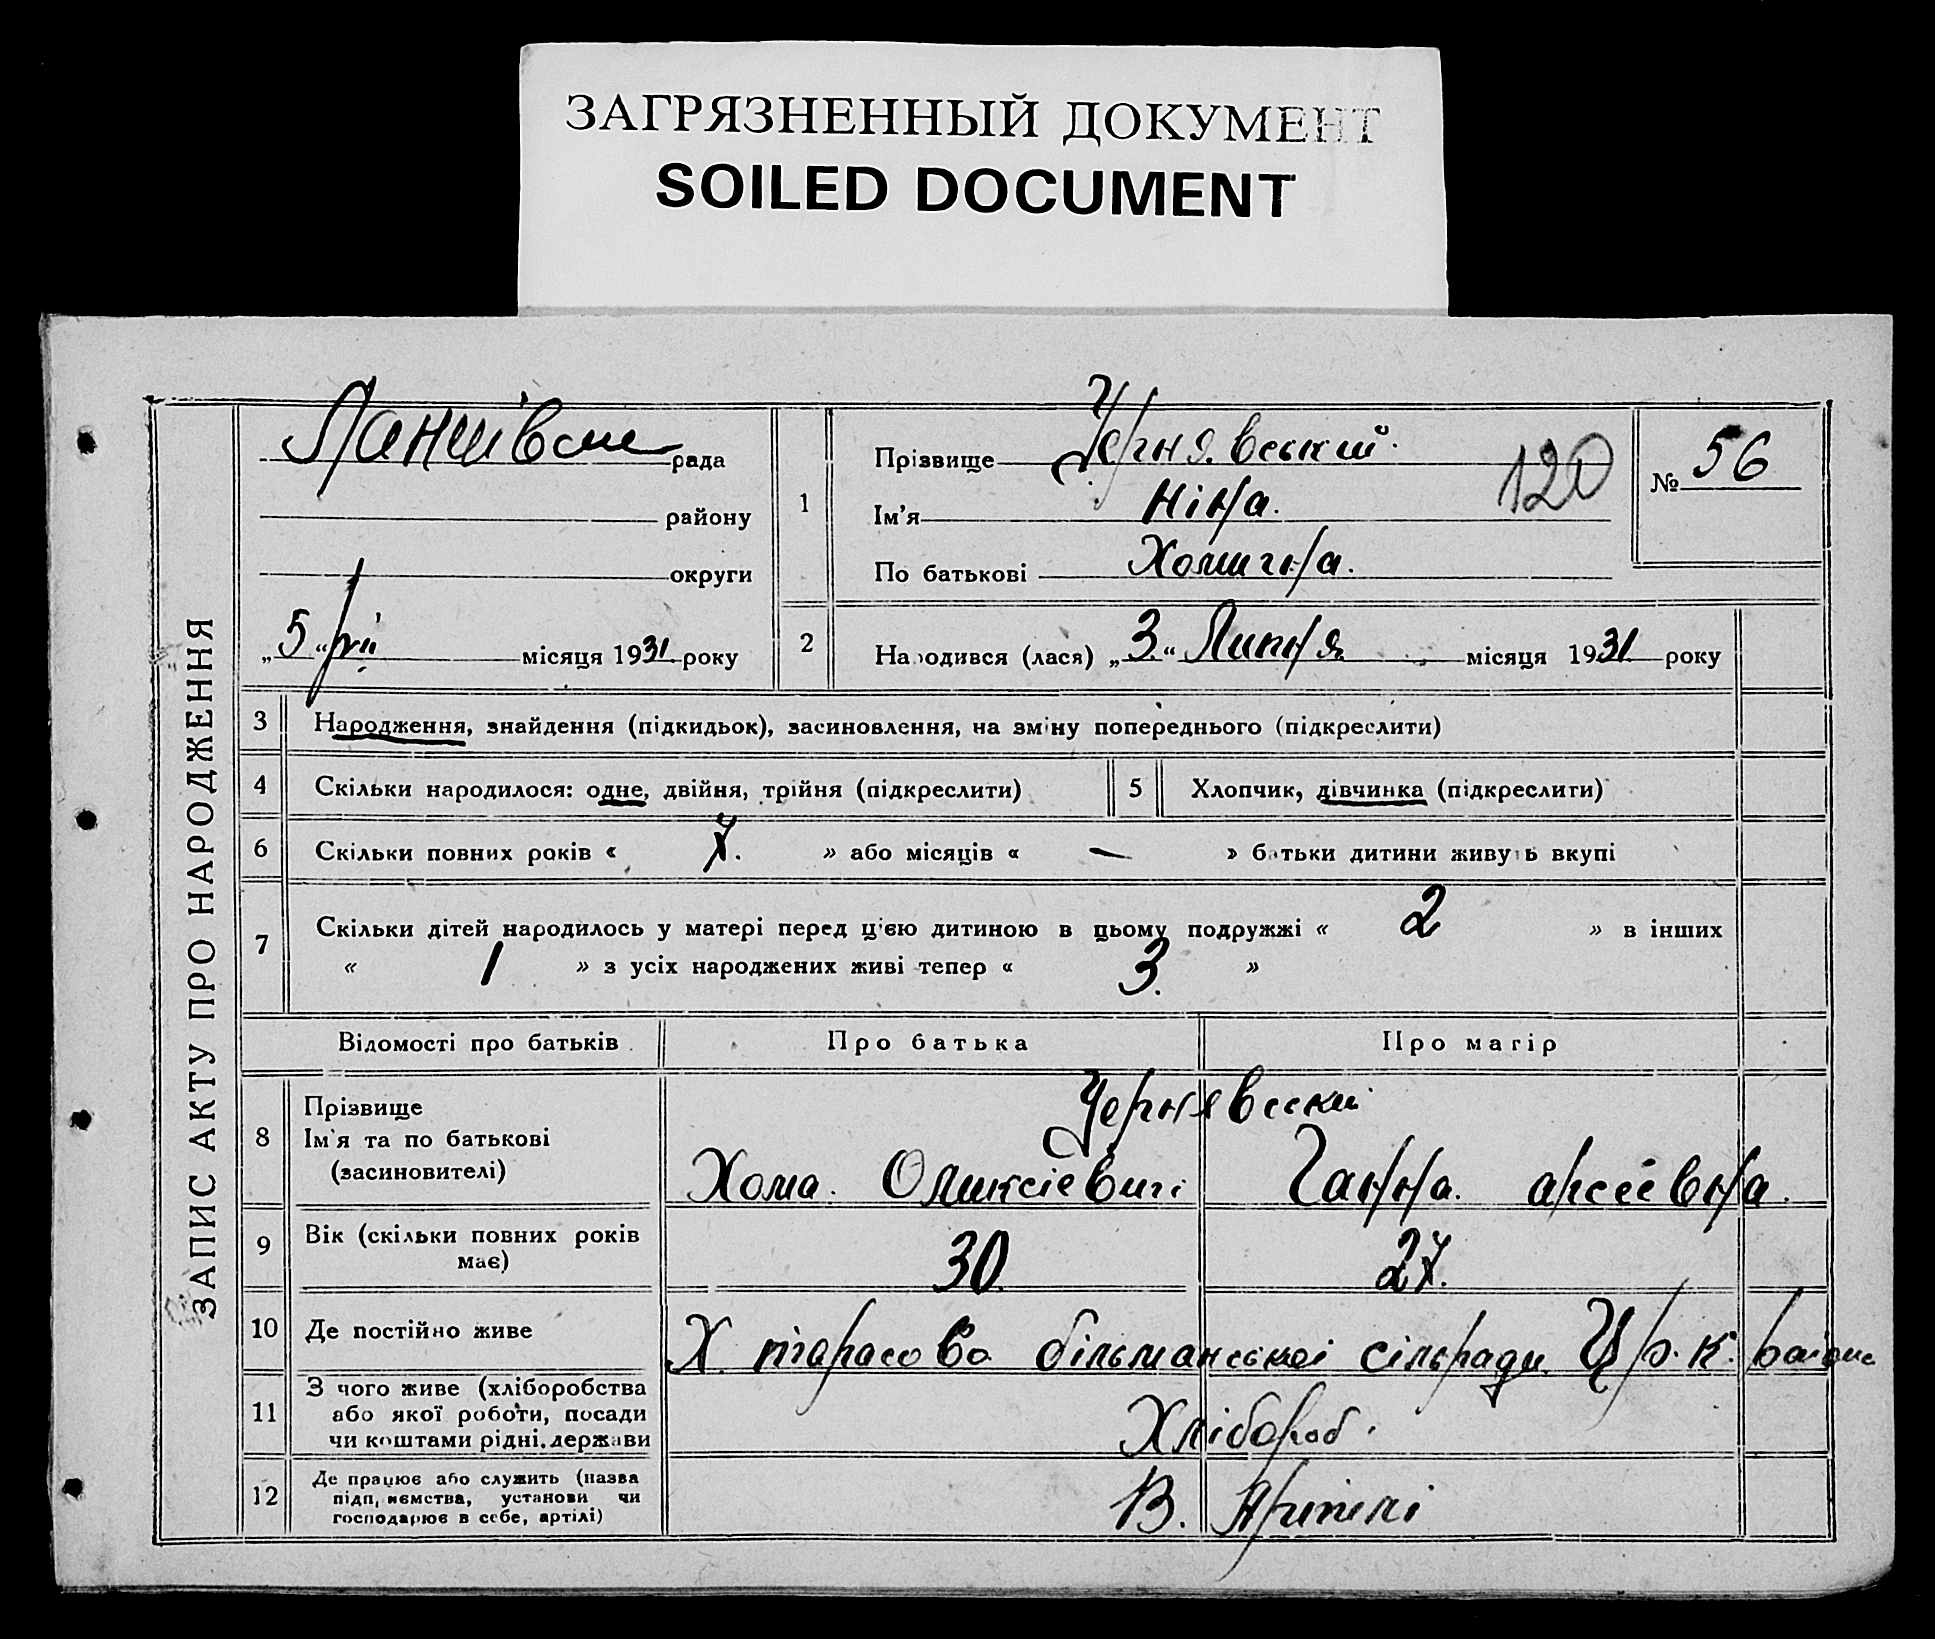 ЗАГРЯЗНЕННЫЙ ДОКУМЕНТ
SOILED DOCUMENT
ЗАПИС АКТУ ПРО НАРОДЖЕННЯ
рада
району
округи
„5“ VII місяця 1931 року
1
Прізвище Чернявський
Ім'я Ніна.
По батькові Хомична.
120
№ 56
2 Народився (лася) „3“ Липня місяця 1931 року
3 Народження, знайдення (підкидьок), засиновлення, на зміну попереднього (підкреслити)
4 Скільки народилося: одне, двійня, трійня (підкреслити) 5 Хлопчик, дівчинка (підкреслити)
6 Скільки повних років « 7. » або місяців « — » батьки дитини живуть вкупі
7 Скільки дітей народилось у матері перед ц'єю дитиною в цьому подружжі « 2 » в інших
« 1 » з усіх народжених живі тепер « 3. »
Відомості про батьків Про батька Про матір
8 Прізвище
Ім'я та по батькові
(засиновителі)
Чернявський
Хома. Оликсіевич Ганна. арсеєвна.
9 Вік (скільки повних років має) 30 27.
10 Де постійно живе Х. тарасовa більманської сільради Ц р. к. району
11 З чого живе (хліборобства
або якої роботи, посади
чи коштами рідні, держави
Хлібороб.
12 Де працює або служить (назва
підприємства, установи чи
господарює в себе, артілі)
В. Артілі